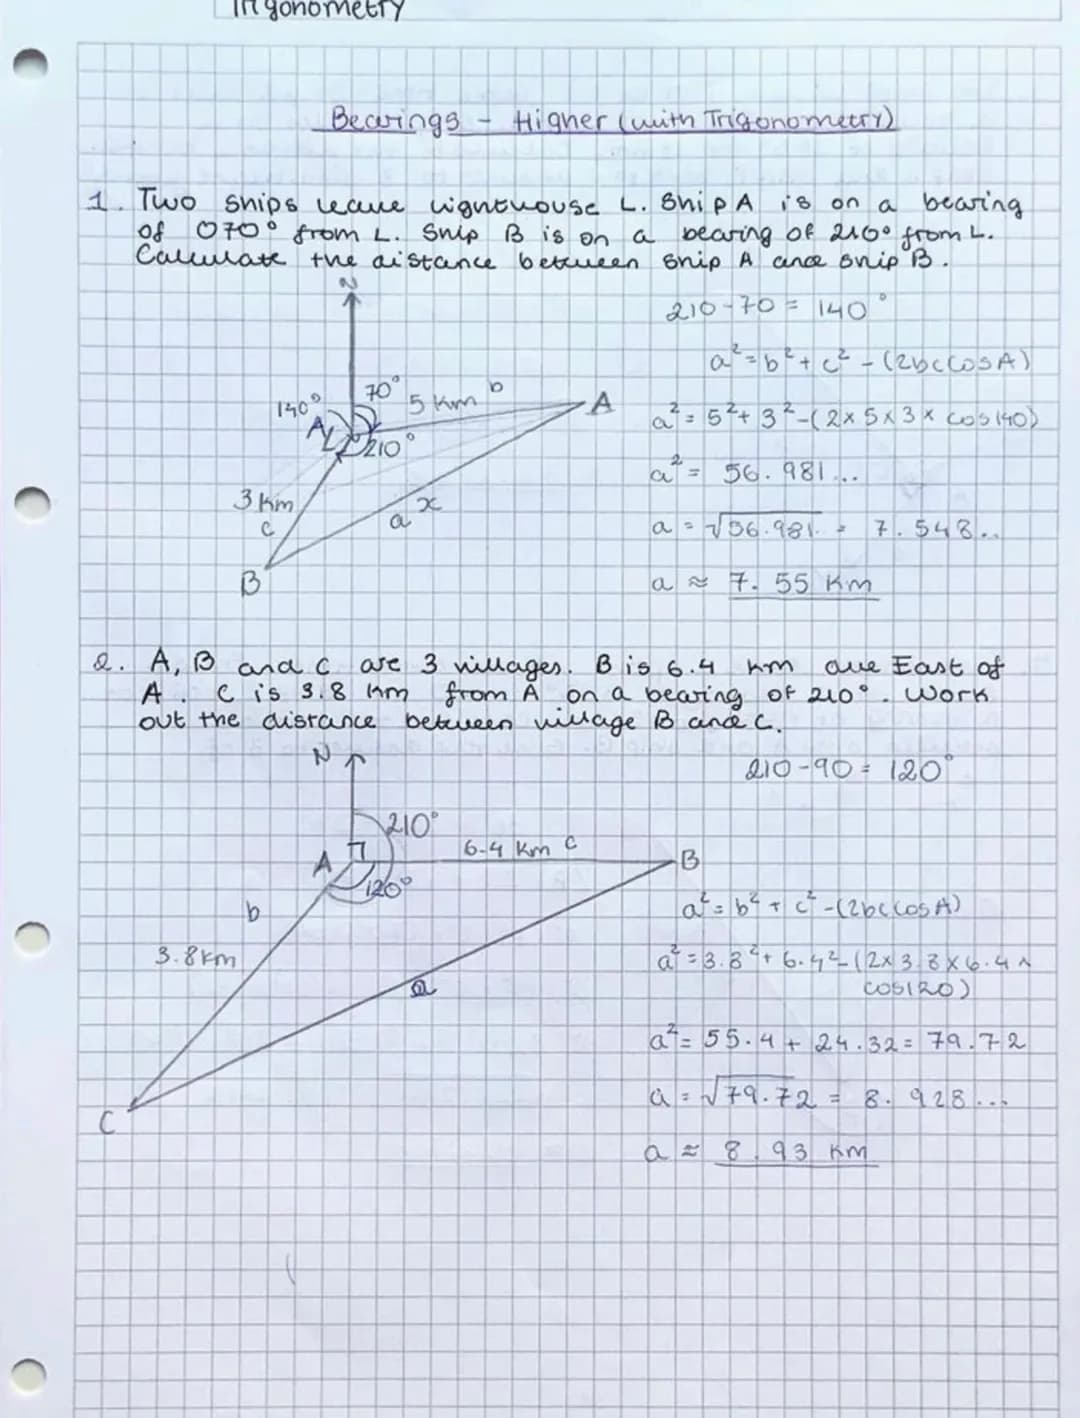 Trigonometry
Bearings - Higher (with Trigonometry)
1. Two ships leave lighthouse L. Ship A is on a bearing
of 070° from L. Ship B is on a bearing of 210° from L.
Calculate the distance between ship A and ship B.
N
210-70 = 140°
a² = b² + c² - (2bc cos A)
140°
70°
5 km
b
A
A
L
210°
a² = 5² + 3² - (2 x 5 x 3 x cos 140)
a² = 56.981...
3 km
c
x
a
a = √56.981. = 7.548..
B
a ≈ 7.55 km
2. A, B and C are 3 villages. B is 6.4 km due East of
A. C is 3.8 km from A on a bearing of 210°. Work
out the distance between village B and C.
N
210-90 = 120°
210°
6.4 km c
A
B
120°
b
a² = b² + c² - (2bc cos A)
3.8 km
a² = 3.8² + 6.4² - (2 x 3.8 x 6.4 x
cos 120)
a
a² = 55.4 + 24.32 = 79.72
a = √79.72 = 8.928...
C
a ≈ 8.93 km